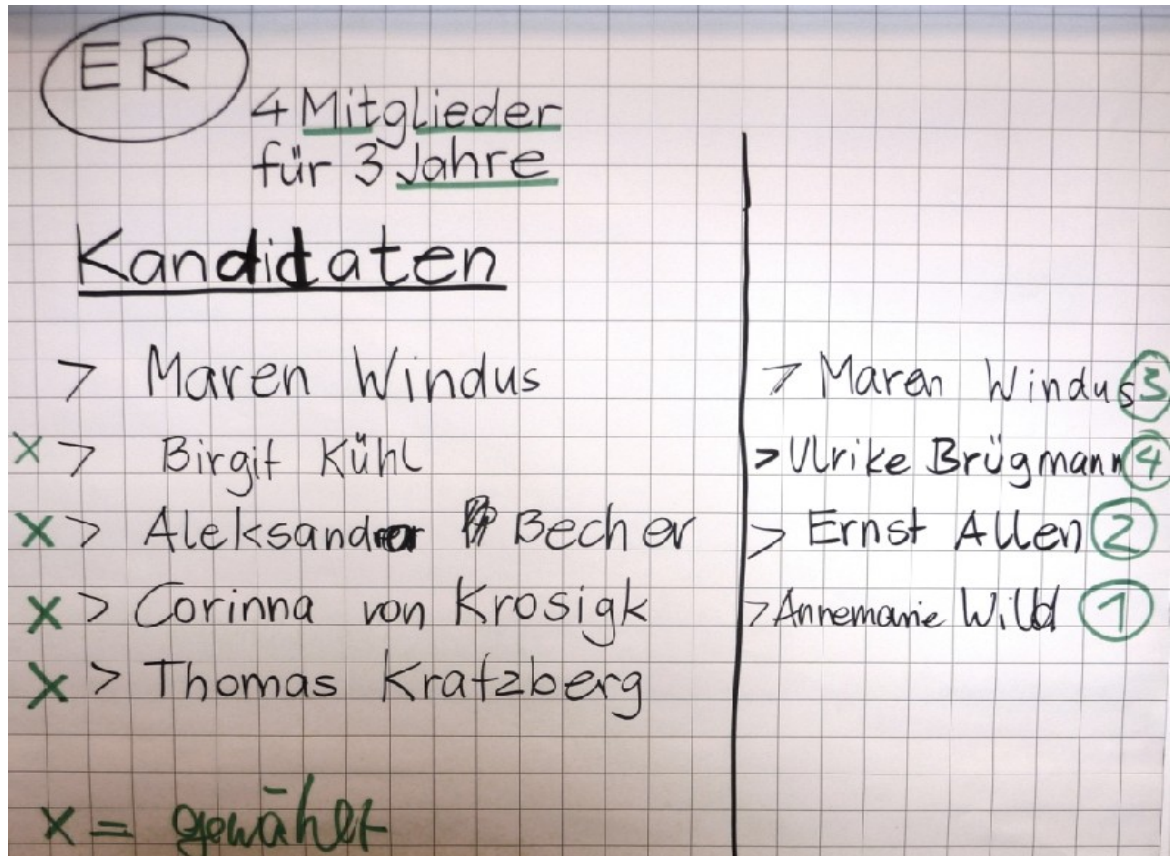 ER
4 Mitglieder
für 3 Jahre
Kandidaten
> Maren Windus
x > Birgit Kühl
x > Aleksandar Becher
x > Corinna von Krosigk
x > Thomas Kratzberg
x = gewählt
> Maren Windus 3
> Ulrike Brügmann 4
> Ernst Allen 2
> Annemarie Wild 1